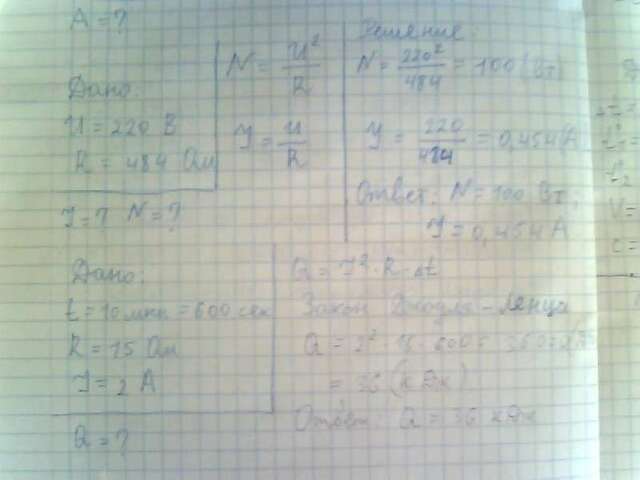 A = ?
Дано:
U = 220 В
R = 484 Ом
J = ? N = ?
N = U² / R
J = U / R
Решение:
N = 220² / 484 = 100 (Вт)
J = 220 / 484 = 0,454 (А
Ответ: N = 100 Вт,
J = 0,454 А
Дано:
t = 10 мин = 600 сек
R = 15 Ом
J = 2 А
Q = ?
Q = J² · R · Δt
Закон Джоуля - Ленца
Q = 2² · 15 · 600 =
= 36 (кДж)
Ответ: Q = 36 кДж
V =
c =